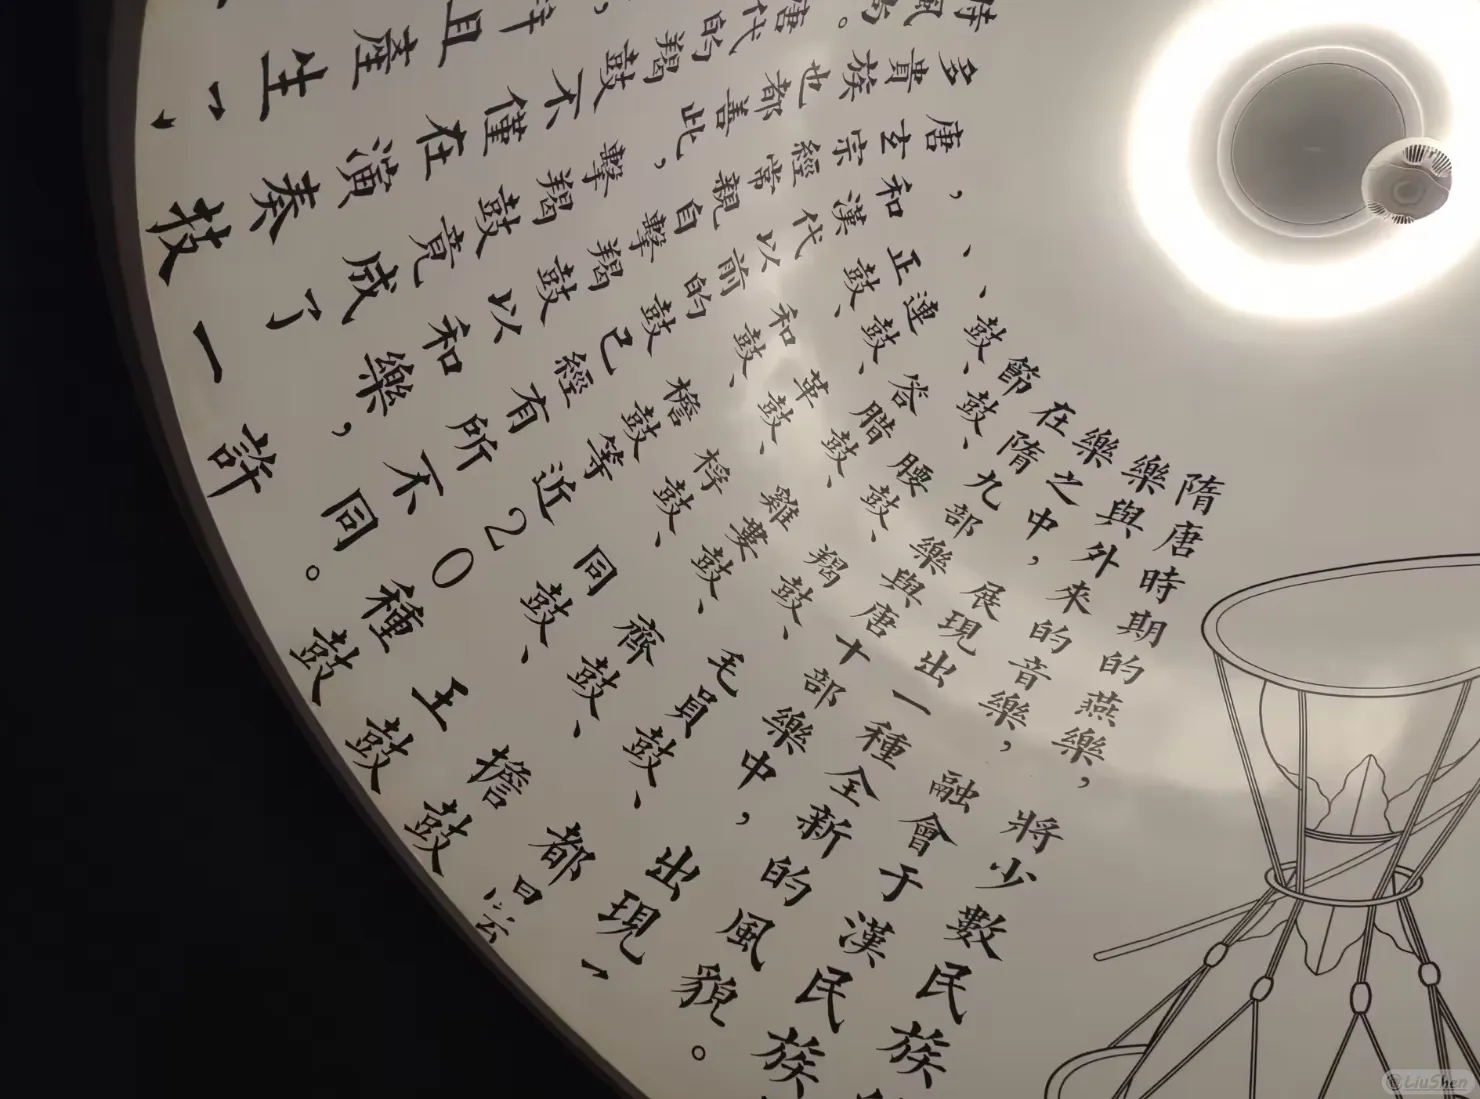 隋唐時期的燕樂，將少數民族
樂與外來的音樂，融會于漢民族
樂之中，展現出一種全新的風貌。
在隋九部樂與唐十部樂中，出現一
節鼓、腰鼓、羯鼓、毛員鼓、都曇
鼓、答腊鼓、雞婁鼓、齊鼓、擔鼓
、連鼓、革鼓、桴鼓、同鼓、王鼓
、正鼓、和鼓、檐鼓等近20種鼓
，和漢代以前的鼓已經有所不同。
唐玄宗經常親自擊羯鼓以和樂，許
多貴族也都善此，擊羯鼓竟成了一
時風尚。唐代的羯鼓不僅在演奏技
且產生
@LiuShen